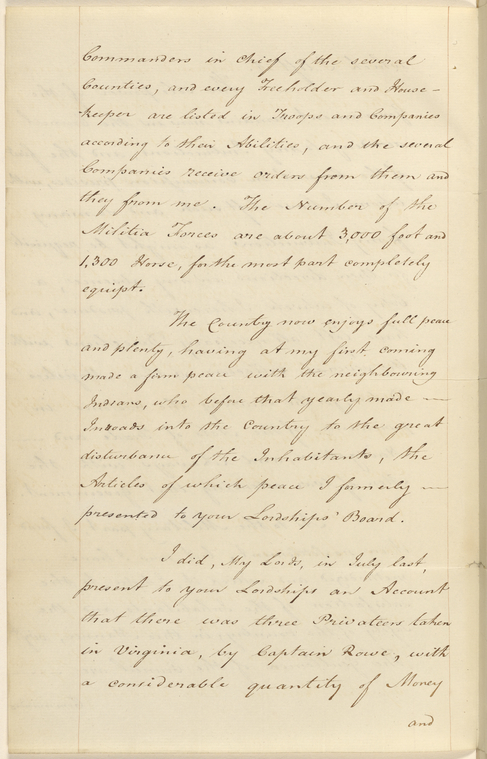 Commanders in chief of the several
Counties, and every Freeholder and House-
keeper are listed in Troops and Companies
according to their Abilities, and the several
Companies receive orders from them and
they from me. The Number of the
Militia Forces are about 3,000 foot and
1,300 Horse, for the most part completely
equipt.
The Country now enjoys full peace
and plenty, having at my first coming
made a firm peace with the neighbouring
Indians, who before that yearly made —
Inroads into the Country to the great
disturbance of the Inhabitants, the
Articles of which peace I formerly —
presented to your Lordships' Board.
I did, My Lords, in July last,
present to your Lordships an Account
that there was three Privateers taken
in Virginia, by Captain Rowe, with
a considerable quantity of Money
and